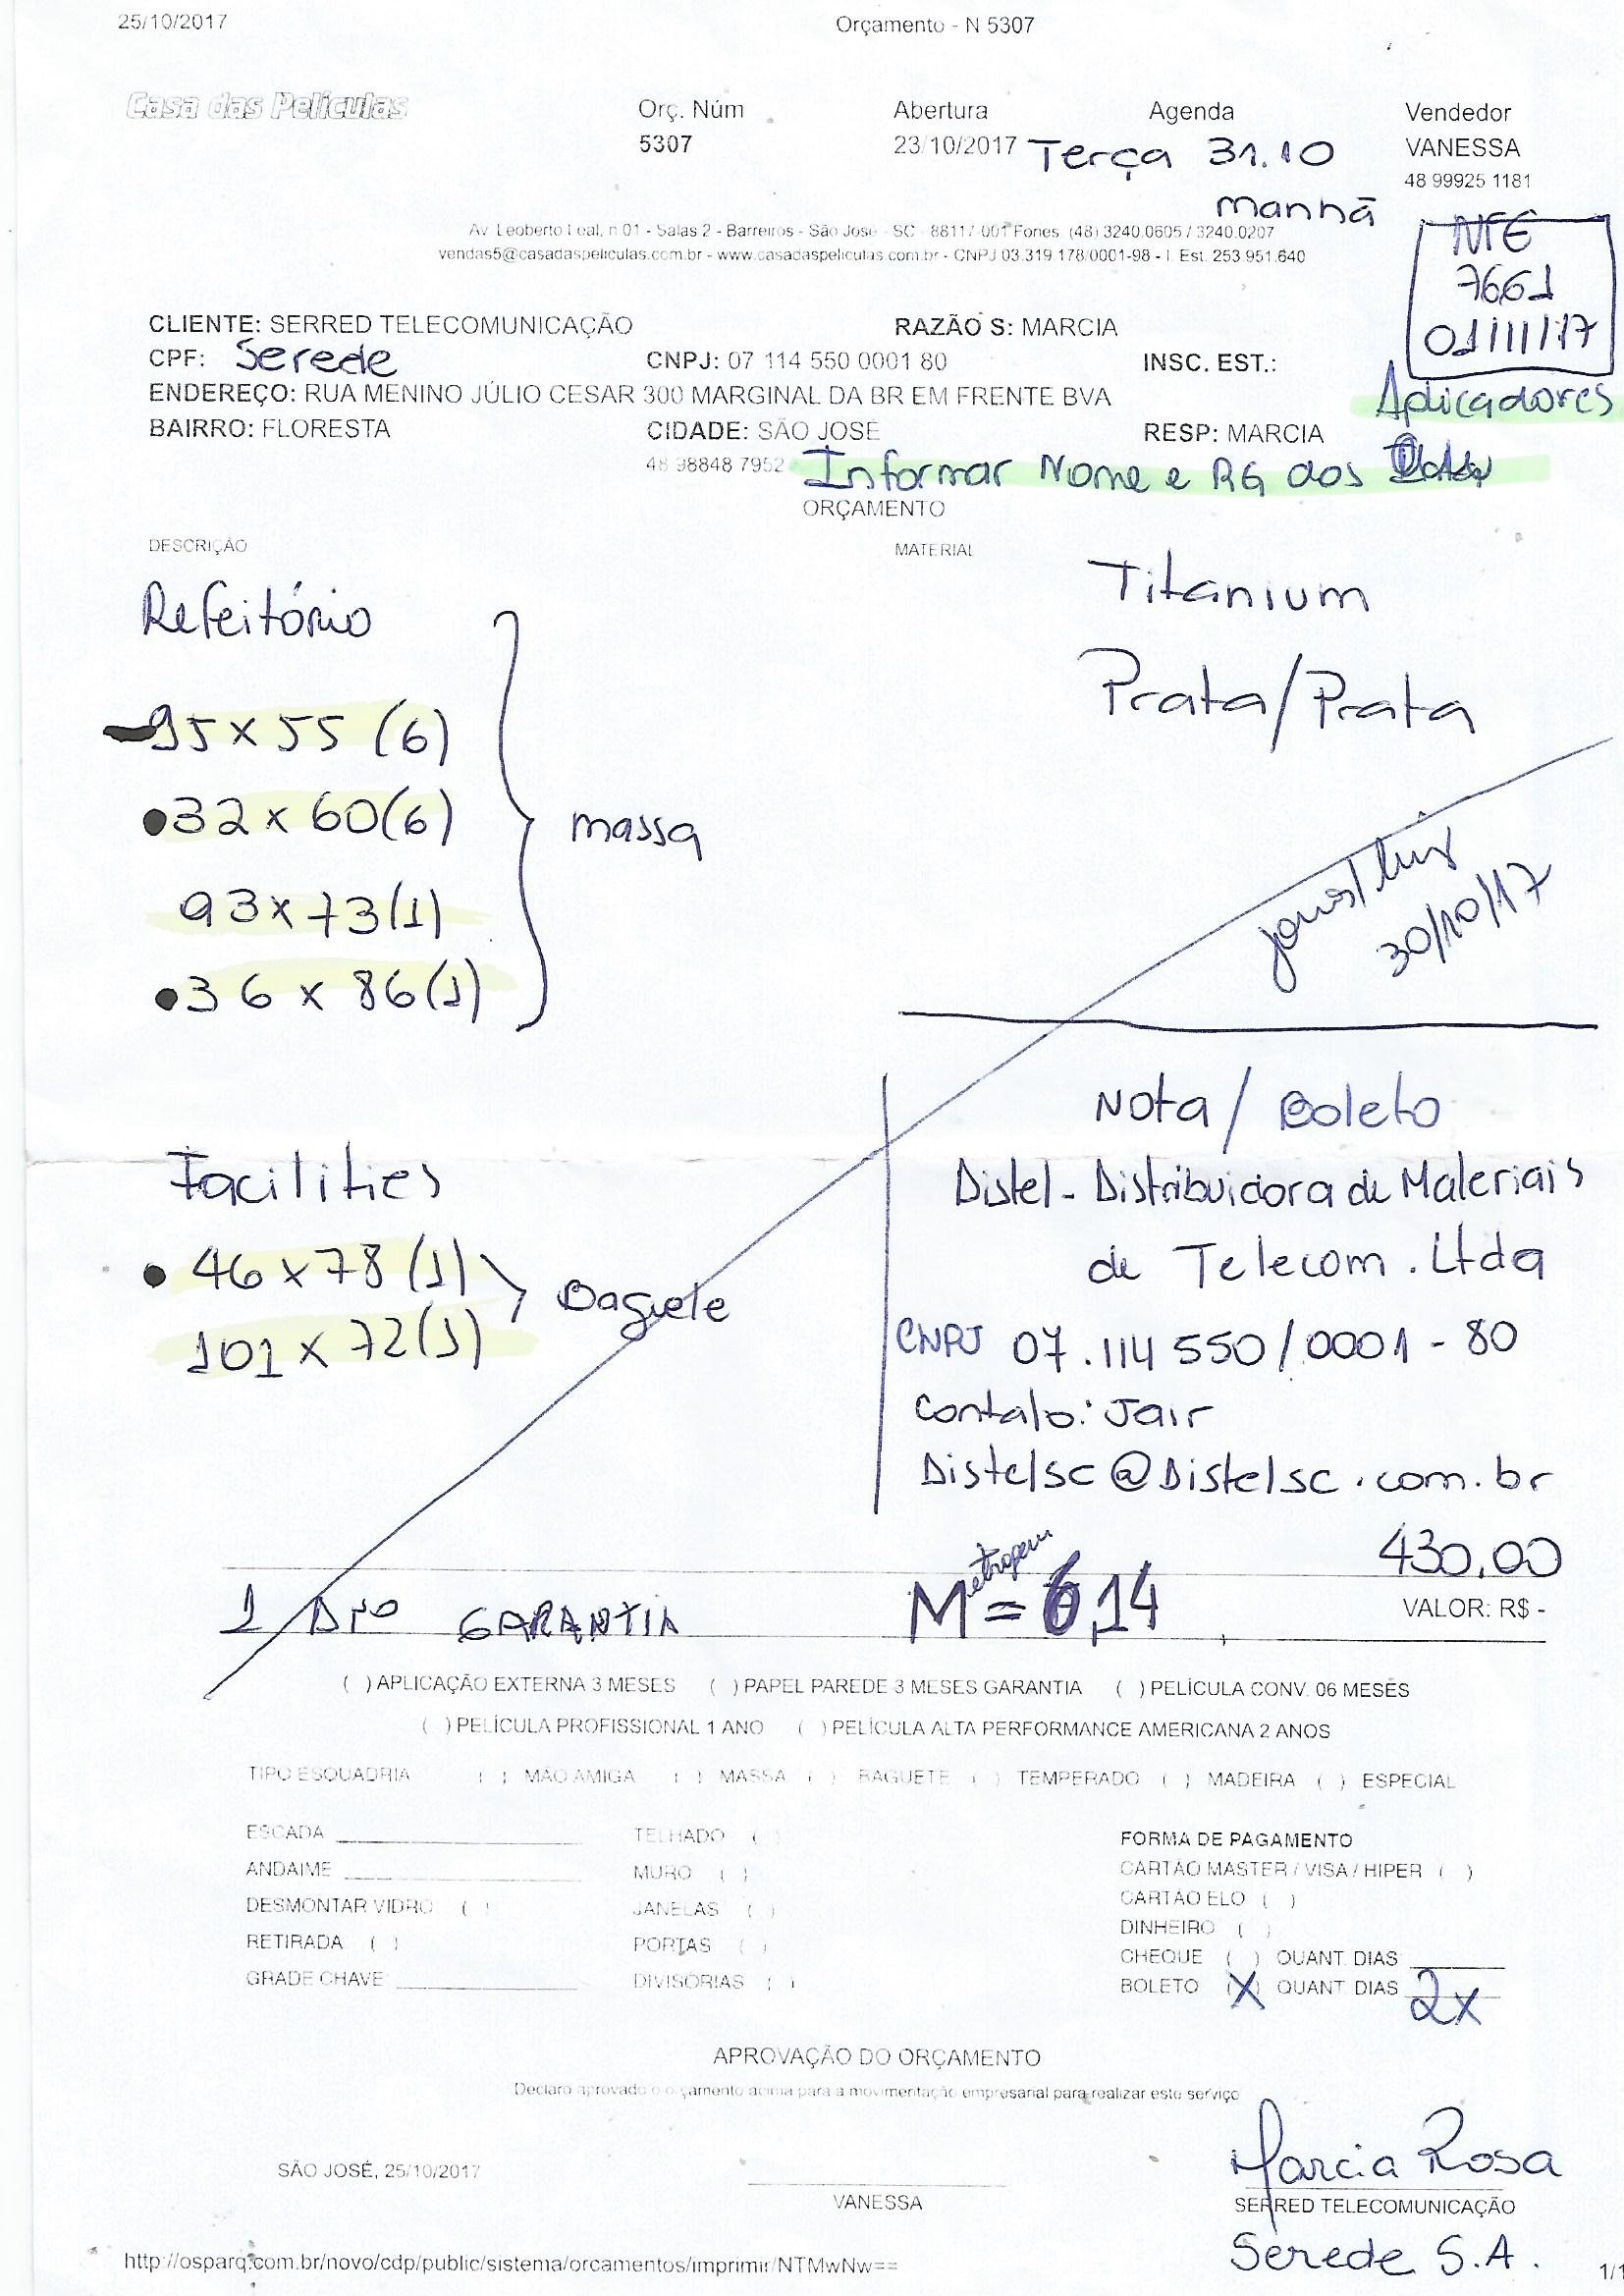 25/10/2017 Orçamento - N 5307
Casa das Películas Orç. Núm Abertura Agenda Vendedor
5307 23/10/2017 Terça 31.10 VANESSA
manhã 48 99925 1181
Av. Leoberto Leal, n 01 - Salas 2 - Barreiros - São José - SC - 88117-001 Fones. (48) 3240.0605 / 3240.0207
vendas5@casadaspeliculas.com.br - www.casadaspeliculas.com.br - CNPJ 03.319 178/0001-98 - I. Est. 253.951.640
NFE
7661
01/11/17
CLIENTE: SERRED TELECOMUNICAÇÃO RAZÃO S: MARCIA
CPF: Serede CNPJ: 07 114 550 0001 80 INSC. EST.:
ENDEREÇO: RUA MENINO JÚLIO CESAR 300 MARGINAL DA BR EM FRENTE BVA
Aplicadores
BAIRRO: FLORESTA CIDADE: SÃO JOSÉ RESP: MARCIA
48 98848 7952 Informar Nome e RG dos
ORÇAMENTO
DESCRIÇÃO MATERIAL
Refeitório Titanium
Prata/Prata
95 x 55 (6)
32 x 60 (6) massa
93 x 73 (1)
36 x 86 (1)
30/10/17
Nota / Boleto
Facilities Distel - Distribuidora de Materiais
de Telecom. Ltda
46 x 78 (1) Baguete
101 x 72 (1)
CNPJ 07.114 550/0001-80
Contato: Jair
Distelsc@Distelsc.com.br
430,00
1 Ano GARANTIA Metragem = 6,14 VALOR: R$ -
( ) APLICAÇÃO EXTERNA 3 MESES ( ) PAPEL PAREDE 3 MESES GARANTIA ( ) PELÍCULA CONV. 06 MESES
( ) PELÍCULA PROFISSIONAL 1 ANO ( ) PELÍCULA ALTA PERFORMANCE AMERICANA 2 ANOS
TIPO ESQUADRIA ( ) MÃO AMIGA ( ) MASSA ( ) BAGUETE ( ) TEMPERADO ( ) MADEIRA ( ) ESPECIAL
ESCADA TELHADO ( ) FORMA DE PAGAMENTO
ANDAIME MURO ( ) CARTÃO MASTER / VISA / HIPER ( )
DESMONTAR VIDRO ( ) JANELAS ( ) CARTÃO ELO ( )
RETIRADA ( ) PORTAS ( ) DINHEIRO ( )
GRADE CHAVE DIVISÓRIAS ( ) CHEQUE ( ) QUANT. DIAS
BOLETO (X) QUANT. DIAS 2x
APROVAÇÃO DO ORÇAMENTO
Declaro aprovado o orçamento acima para a movimentação empresarial para realizar este serviço
Marcia Rosa
SÃO JOSÉ, 25/10/2017
VANESSA SERRED TELECOMUNICAÇÃO
Serede S.A.
http://osparq.com.br/novo/cdp/public/sistema/orcamentos/imprimir/NTMwNw== 1/1